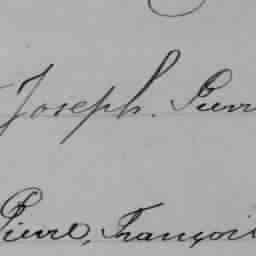 Joseph. Pierr
Pierre, Françoi